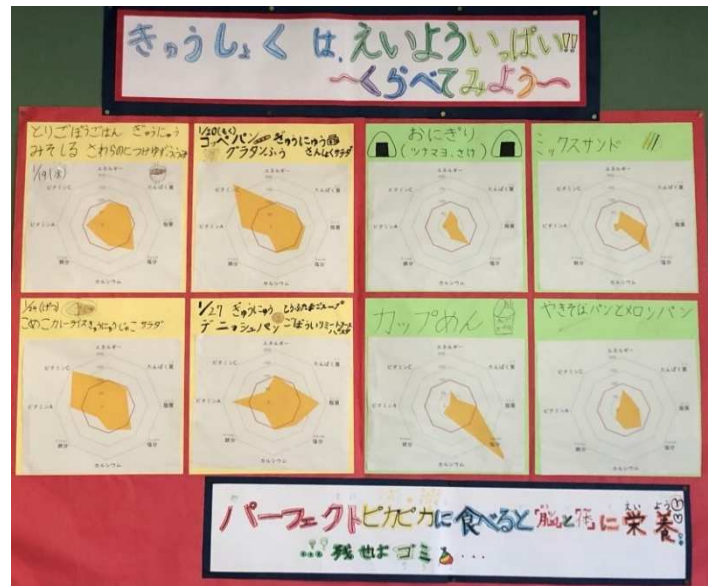 きゅうしょくは、えいよういっぱい!!
～くらべてみよう～
とりごぼうごはん ぎゅうにゅう
みそしる さわらのにつけゆずふうみ
1/19(水)
エネルギー
たんぱく質
脂質
塩分
カルシウム
鉄分
ビタミンA
ビタミンC
1/20(もく)
コッペパン ぎゅうにゅう
グラタンふう さんしょくサラダ
エネルギー
たんぱく質
脂質
塩分
カルシウム
鉄分
ビタミンA
ビタミンC
おにぎり
(ツナマヨ、さけ)
エネルギー
たんぱく質
脂質
塩分
カルシウム
鉄分
ビタミンA
ビタミンC
ミックスサンド
エネルギー
たんぱく質
脂質
塩分
カルシウム
鉄分
ビタミンA
ビタミンC
1/24(げつ)
こめこカレーライス ぎゅうにゅう じゃこサラダ
エネルギー
たんぱく質
脂質
塩分
カルシウム
鉄分
ビタミンA
ビタミンC
1/27 ぎゅうにゅう
デニッシュパン ごぼういりミートソース
エネルギー
たんぱく質
脂質
塩分
カルシウム
鉄分
ビタミンA
ビタミンC
カップめん
エネルギー
たんぱく質
脂質
塩分
カルシウム
鉄分
ビタミンA
ビタミンC
やきそばパンとメロンパン
エネルギー
たんぱく質
脂質
塩分
カルシウム
鉄分
ビタミンA
ビタミンC
パーフェクトピカピカに食べると「脳」と「体」に栄養!
...残せばゴミ...